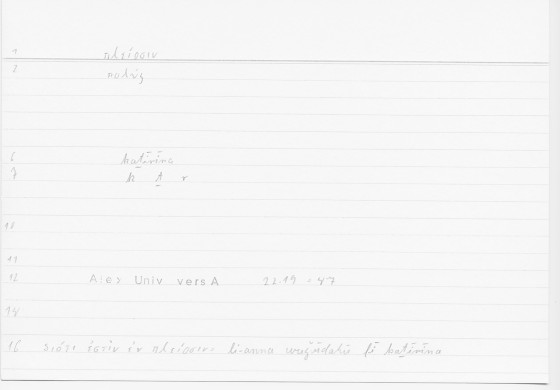 1 πλείοσιν
2 πολύς
6 kaṯīrīna
7 k ṯ r
10
11
12 Alex Univ vers A 22.19 - 47
14
16 διότι ἐστὶν ἐν πλείοσι: li-anna wuǧūdahū fī kaṯīrīna